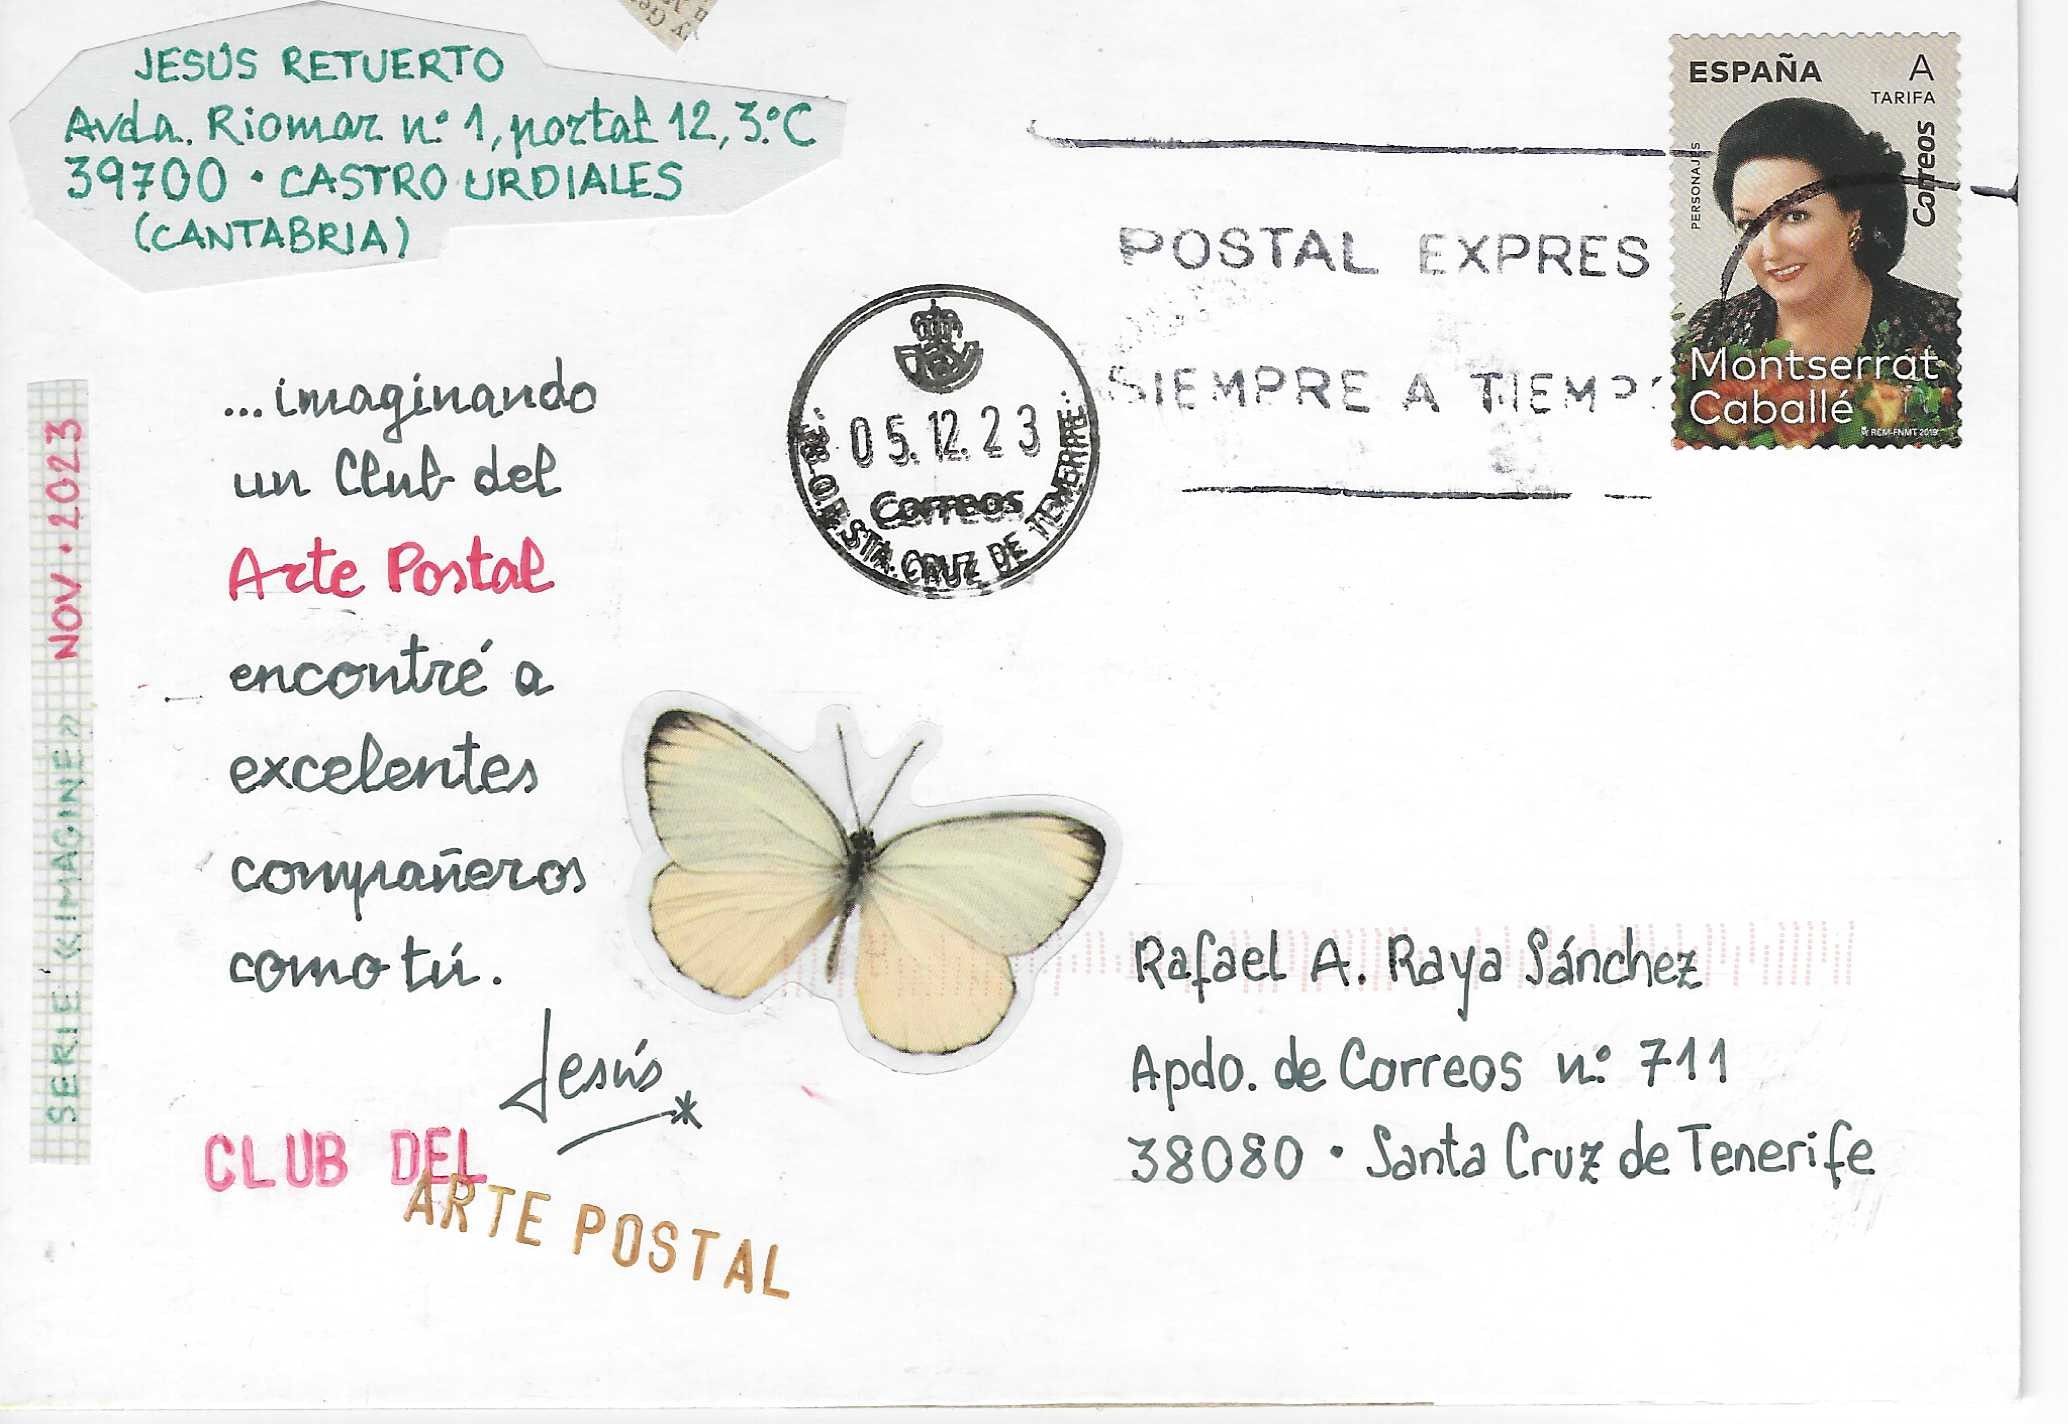 JESÚS RETUERTO
Avda. Riomar nº 1, portal 12, 3.ºC
39700 · CASTRO URDIALES
(CANTABRIA)
ESPAÑA
A
TARIFA
PERSONAJES
Correos
Montserrat
Caballé
RCM-FNMT 2019
POSTAL EXPRES
SIEMPRE A TIEMP
05.12.23
Correos
STA. CRUZ DE TENERIFE
...imaginando
un Club del
Arte Postal
encontré a
excelentes
compañeros
como tú.
Jesús
SERIE «IMAGINE» NOV · 2023
CLUB DEL
ARTE POSTAL
Rafael A. Raya Sánchez
Apdo. de Correos nº 711
38080 · Santa Cruz de Tenerife